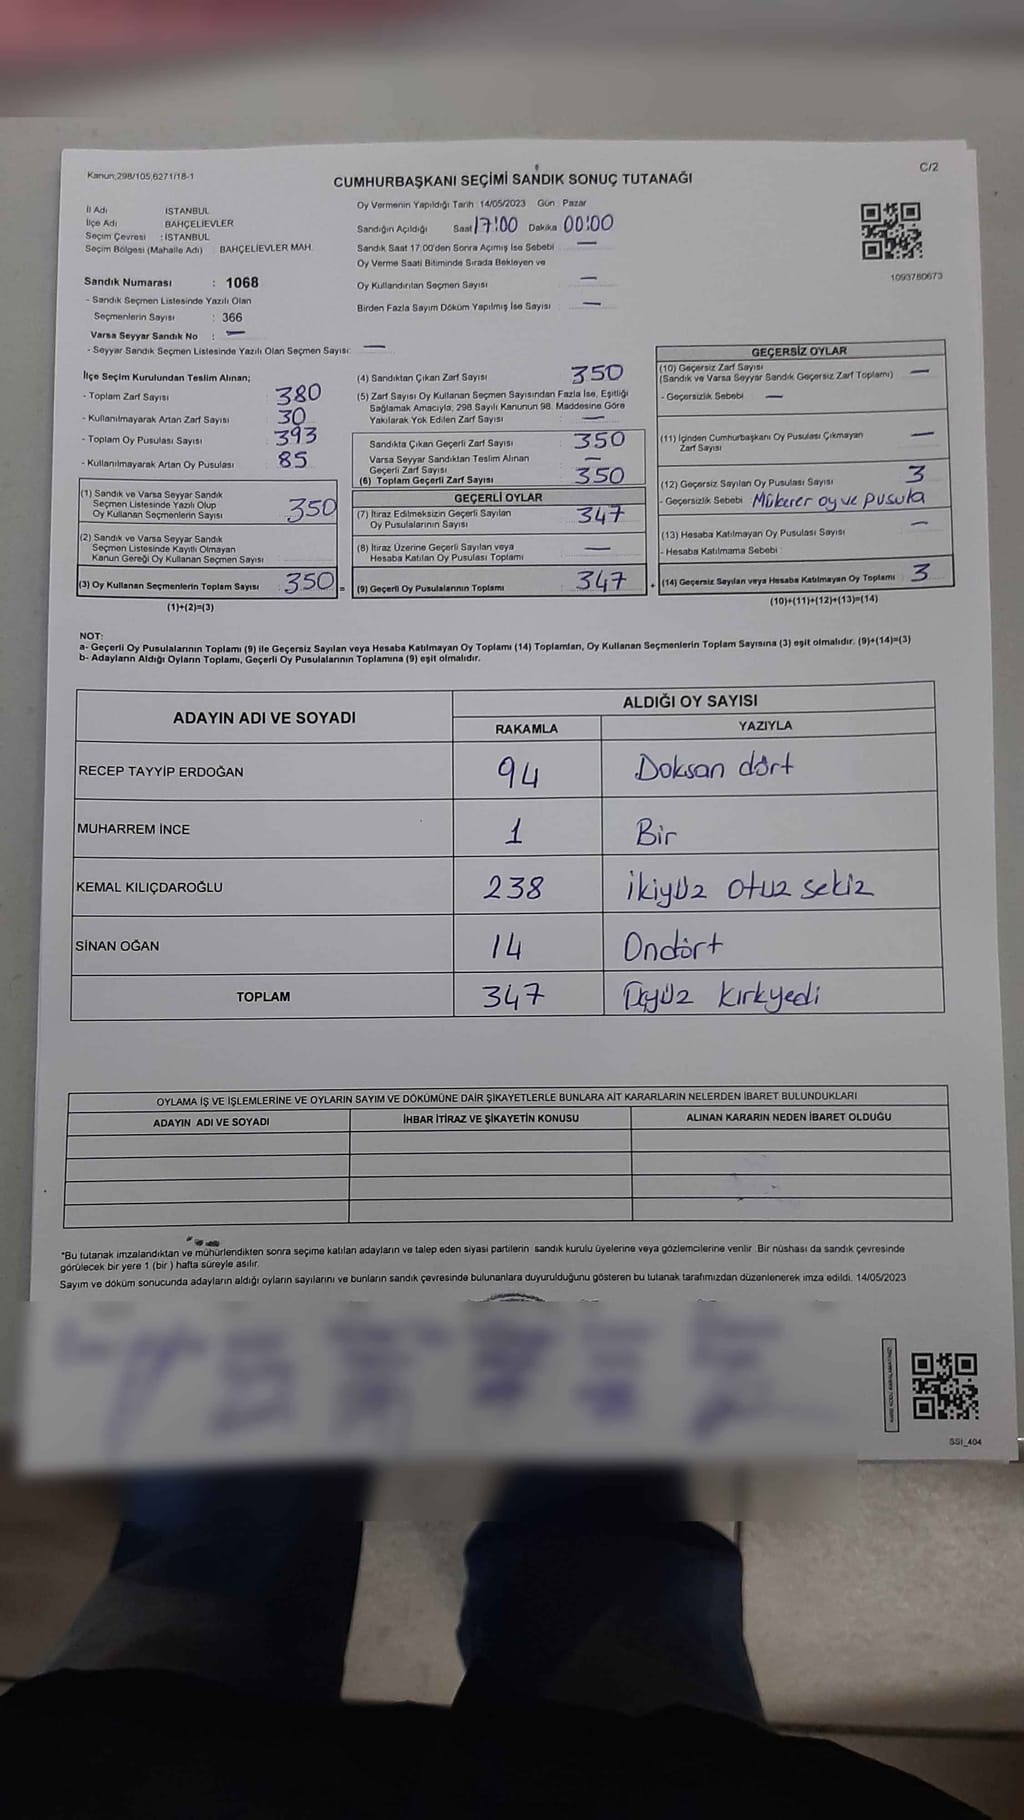 Kanun;298/105,6271/18-1
C/2
CUMHURBAŞKANI SEÇİMİ SANDIK SONUÇ TUTANAĞI
İl Adı İSTANBUL
İlçe Adı BAHÇELİEVLER
Seçim Çevresi : İSTANBUL
Seçim Bölgesi (Mahalle Adı) : BAHÇELİEVLER MAH.
Oy Vermenin Yapıldığı Tarih : 14/05/2023 Gün : Pazar
Sandığın Açıldığı Saat 17:00 Dakika 00:00
Sandık Saat 17.00'den Sonra Açımış İse Sebebi : —
Oy Verme Saati Bitiminde Sırada Bekleyen ve
Oy Kullandırılan Seçmen Sayısı —
Birden Fazla Sayım Döküm Yapılmış İse Sayısı : —
1093780673
Sandık Numarası : 1068
- Sandık Seçmen Listesinde Yazılı Olan
Seçmenlerin Sayısı : 366
Varsa Seyyar Sandık No : —
- Seyyar Sandık Seçmen Listesinde Yazılı Olan Seçmen Sayısı: —
İlçe Seçim Kurulundan Teslim Alınan;
- Toplam Zarf Sayısı : 380
- Kullanılmayarak Artan Zarf Sayısı : 30
- Toplam Oy Pusulası Sayısı : 393
- Kullanılmayarak Artan Oy Pusulası : 85
(1) Sandık ve Varsa Seyyar Sandık
Seçmen Listesinde Yazılı Olup
Oy Kullanan Seçmenlerin Sayısı 350
(2) Sandık ve Varsa Seyyar Sandık
Seçmen Listesinde Kayıtlı Olmayan
Kanun Gereği Oy Kullanan Seçmen Sayısı
(3) Oy Kullanan Seçmenlerin Toplam Sayısı : 350 =
(1)+(2)=(3)
(4) Sandıktan Çıkan Zarf Sayısı : 350
(5) Zarf Sayısı Oy Kullanan Seçmen Sayısından Fazla İse, Eşitliği
Sağlamak Amacıyla, 298 Sayılı Kanunun 98. Maddesine Göre
Yakılarak Yok Edilen Zarf Sayısı : —
Sandıkta Çıkan Geçerli Zarf Sayısı : 350
Varsa Seyyar Sandıktan Teslim Alınan
Geçerli Zarf Sayısı : —
(6) Toplam Geçerli Zarf Sayısı : 350
GEÇERLİ OYLAR
(7) İtiraz Edilmeksizin Geçerli Sayılan
Oy Pusulalarının Sayısı : 347
(8) İtiraz Üzerine Geçerli Sayılan veya
Hesaba Katılan Oy Pusulası Toplamı : —
(9) Geçerli Oy Pusulalarının Toplamı : 347 +
GEÇERSİZ OYLAR
(10) Geçersiz Zarf Sayısı
(Sandık ve Varsa Seyyar Sandık Geçersiz Zarf Toplamı) : —
- Geçersizlik Sebebi : —
(11) İçinden Cumhurbaşkanı Oy Pusulası Çıkmayan
Zarf Sayısı : —
(12) Geçersiz Sayılan Oy Pusulası Sayısı : 3
- Geçersizlik Sebebi : Mükerer oy ve pusula
(13) Hesaba Katılmayan Oy Pusulası Sayısı : —
- Hesaba Katılmama Sebebi :
(14) Geçersiz Sayılan veya Hesaba Katılmayan Oy Toplamı : 3
(10)+(11)+(12)+(13)=(14)
NOT:
a- Geçerli Oy Pusulalarının Toplamı (9) ile Geçersiz Sayılan veya Hesaba Katılmayan Oy Toplamı (14) Toplamları, Oy Kullanan Seçmenlerin Toplam Sayısına (3) eşit olmalıdır. (9)+(14)=(3)
b- Adayların Aldığı Oyların Toplamı, Geçerli Oy Pusulalarının Toplamına (9) eşit olmalıdır.
ADAYIN ADI VE SOYADI
ALDIĞI OY SAYISI
RAKAMLA YAZIYLA
RECEP TAYYİP ERDOĞAN 94 Doksan dört
MUHARREM İNCE 1 Bir
KEMAL KILIÇDAROĞLU 238 İkiyüz otuz sekiz
SİNAN OĞAN 14 Ondört
TOPLAM 347 Üçyüz kırkyedi
OYLAMA İŞ VE İŞLEMLERİNE VE OYLARIN SAYIM VE DÖKÜMÜNE DAİR ŞİKAYETLERLE BUNLARA AİT KARARLARIN NELERDEN İBARET BULUNDUKLARI
ADAYIN ADI VE SOYADI İHBAR İTİRAZ VE ŞİKAYETİN KONUSU ALINAN KARARIN NEDEN İBARET OLDUĞU
*Bu tutanak imzalandıktan ve mühürlendikten sonra seçime katılan adayların ve talep eden siyasi partilerin sandık kurulu üyelerine veya gözlemcilerine verilir. Bir nüshası da sandık çevresinde
görülecek bir yere 1 (bir) hafta süreyle asılır.
Sayım ve döküm sonucunda adayların aldığı oyların sayılarını ve bunların sandık çevresinde bulunanlara duyurulduğunu gösteren bu tutanak tarafımızdan düzenlenerek imza edildi. 14/05/2023
SSI_404